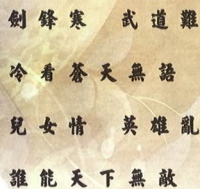 劍鋒寒 武道難
冷看蒼天無語
兒女情 英雄亂
誰能天下無敵